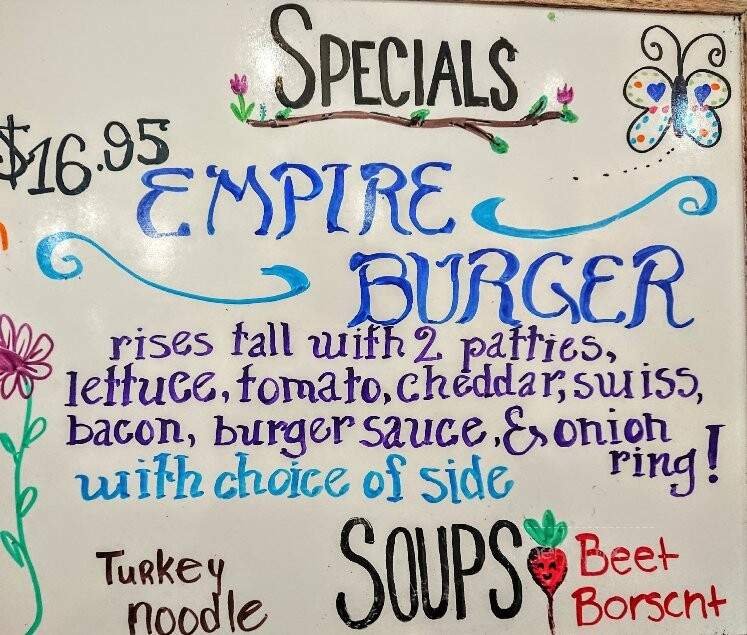 SPECIALS
$16.95
EMPIRE
BURGER
rises tall with 2 patties,
lettuce, tomato, cheddar, swiss,
bacon, burger sauce, & onion
ring!
with choice of side
SOUPS
Turkey
noodle
Beet
Borscht